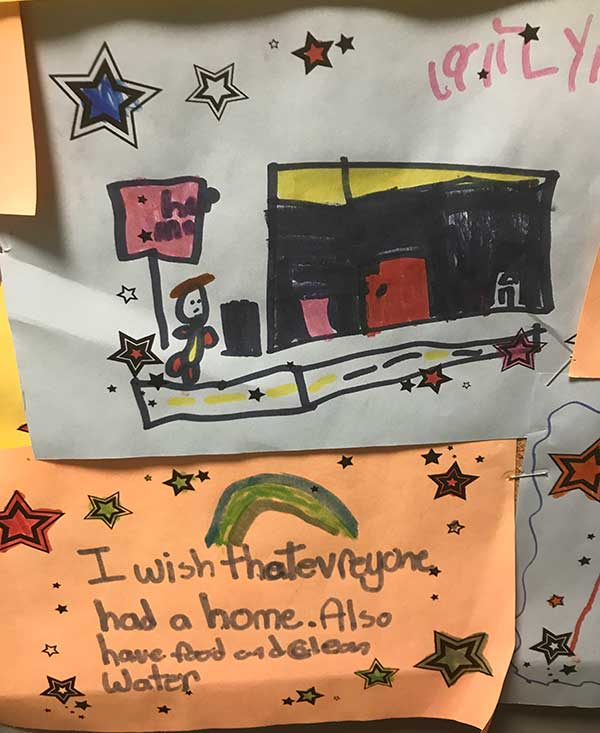 I wish thatevreyone
had a home. Also
have food and clean
Water